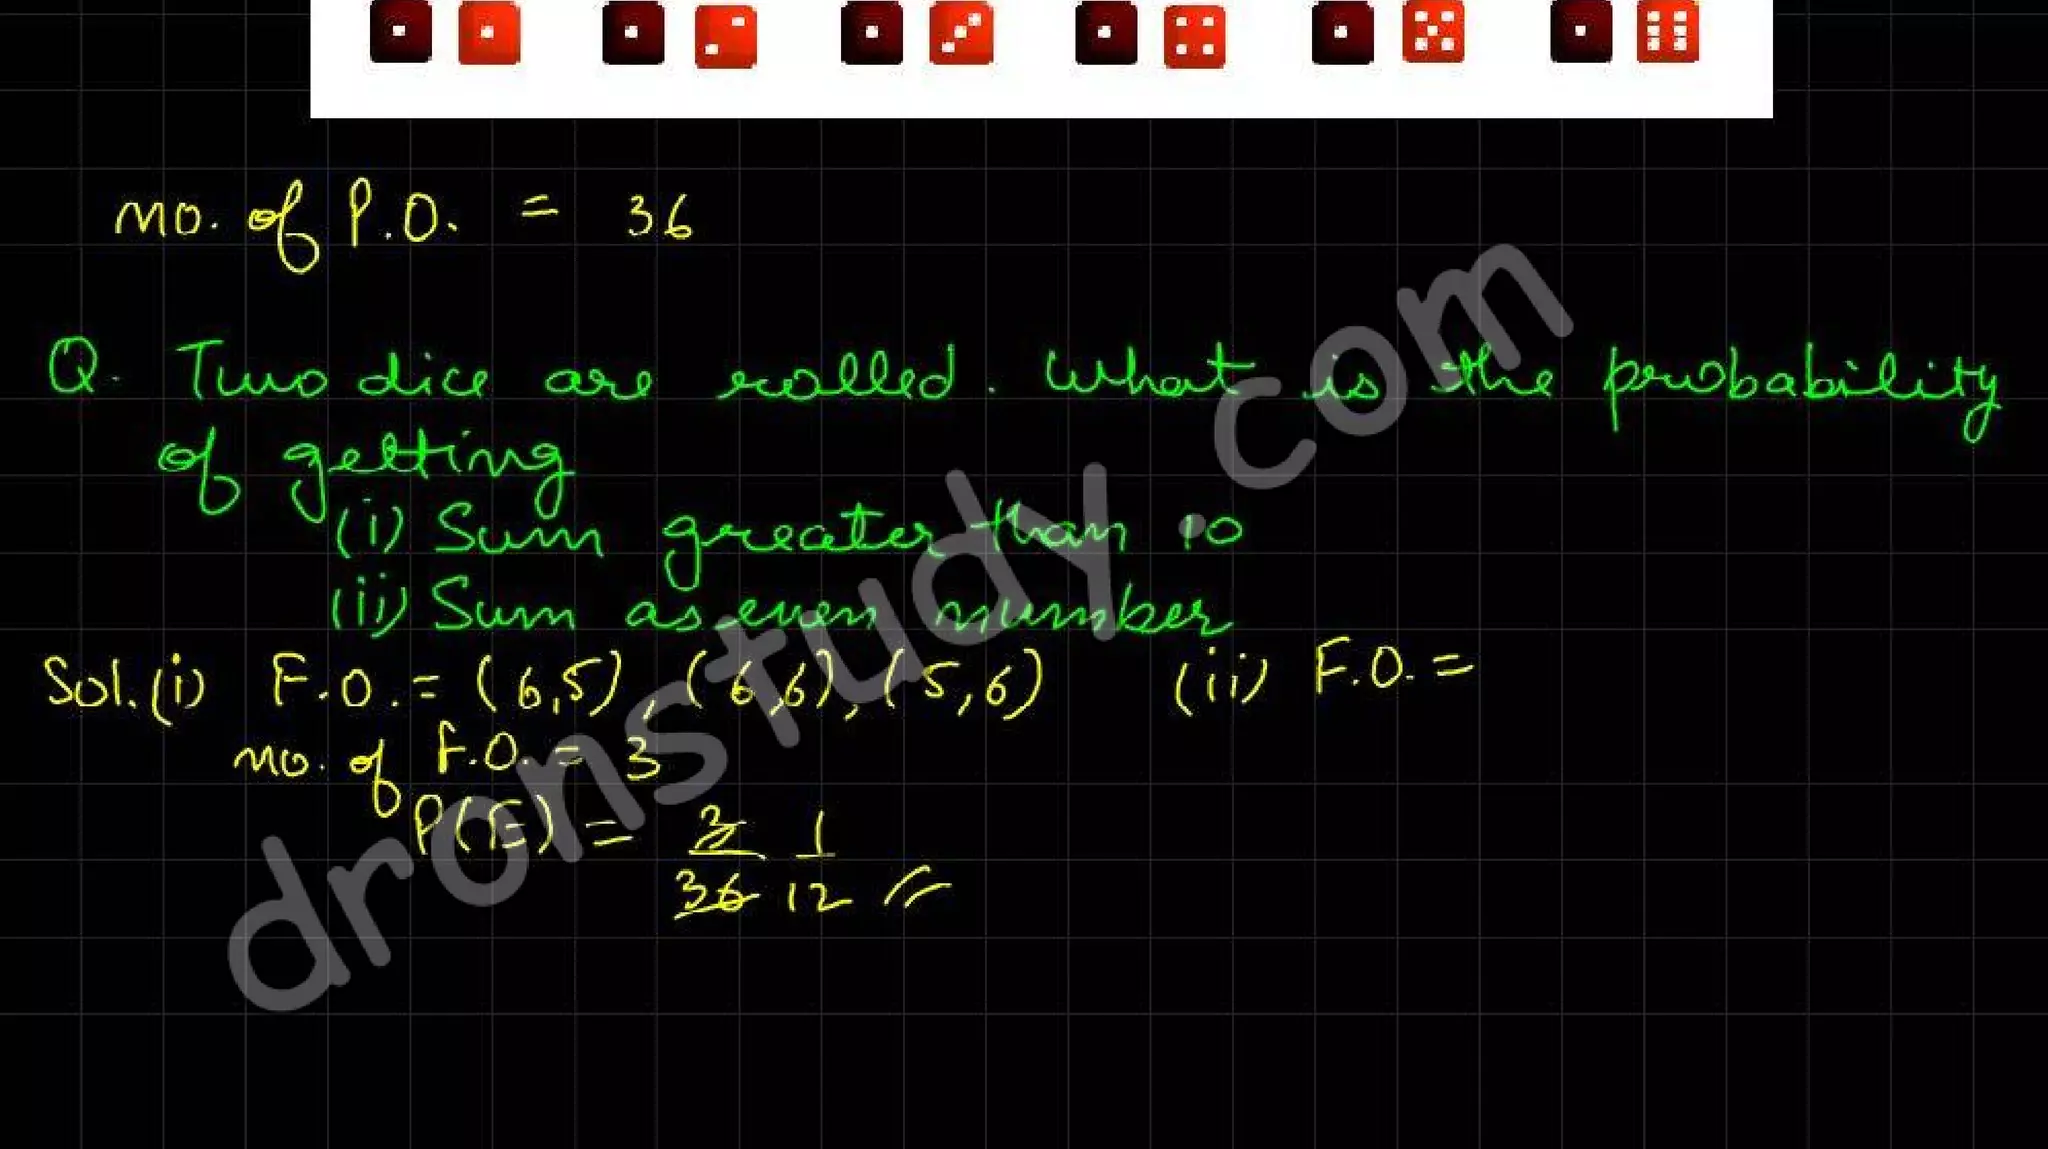 no. of P.O. = 36
Q. Two dice are rolled. What is the probability
of getting
(i) Sum greater than 10
(ii) Sum as even number
Sol. (i) F.O. = (6,5), (6,6), (5,6) (ii) F.O. =
no. of F.O. = 3
P(E) = 3/36 1/12
dronstudy.com